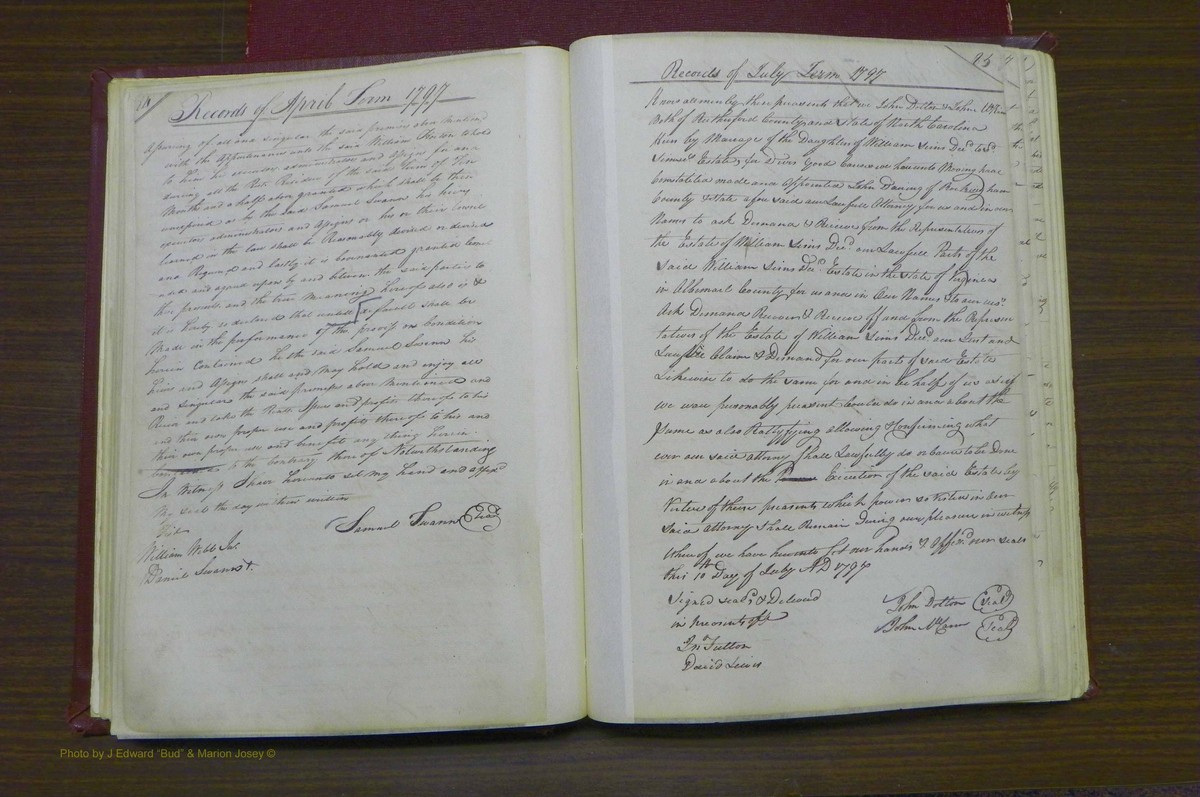 24
Records of April Term 1797
appearing of all and singular the said premises above mentioned
with the Appurtenances unto the said William Horton who
to him his executors administrators and Assigns for and
during all the Rest Residue of the said Term of Ten
Months and a half above granted which shall by then
unexpired as by the said Samuel Swann his heirs
executors administrators and Assigns or his or their Council
learned in the law shall be Reasonably devised or advised
and Required and lastly it is covenanted granted
and agreed upon by and between the said parties to
these presents and the true Meaning hereof also is &
it is hereby so declared that untill default shall be
Made in the performance of the proviso or condition
herein Contained he the said Samuel Swann his
heirs and Assigns shall and May hold and enjoy all
and Singular the said premises above Mentioned and
Receive and take the Rents Issues and profits thereof to his
and their own proper use and profits thereof to his and
their own proper use and benefit any thing herein
to the Contrary thereof Notwithstanding
In Witness I have hereunto set my hand and affixd
My seal the day written written
Test
Samuel Swann Seal
William Webb Jur.
Daniel Swann +
25
Records of July Term 1797
Know all men by these presents that we John Dotton & John McCrew
Both of Rutherford County and State of North Carolina
Heirs by Marriage of the Daughters of William Sims Decd to sd
Simses Estate, for divers good Causes us hereunto Moving have
Constituted made and Appointed John Dauing of Rockingham
County & State afore said our Lawfull Attorney for us and in our
Names to ask Demand & Receive from the Representatives of
the Estate of William Sims Decd our Lawfull Parts of the
said William Sims Decd Estate in the State of Virginia
in Albemarl County for us and in Our Names & to our use
Ask Demand Recover & Receive of and from the Represen
tatives of the Estate of William Sims Decd our Just and
Lawfull Claim & Demand for our parts of said Estate
Likewise to do the same for and in behalf of us as if
we ware personally present Could do in and about the
same as also Rattifying allowing & Confirming what
ever our said attorny shall Lawfully do or cause to be Done
in and about the Execution of the said Estate by
Virtue of these presents which power so Vested in our
said Attorney shall Remain During our pleasure in witness
Whereof we have hereunto set our hands & Affix'd our seals
this 10th Day of July AD 1797
Signed seald & Deliverd
in presents off
John Dotton Seal
John McCrew Seal
Jno Tutton
David Lewis
Photo by J Edward "Bud" & Marion Josey ©